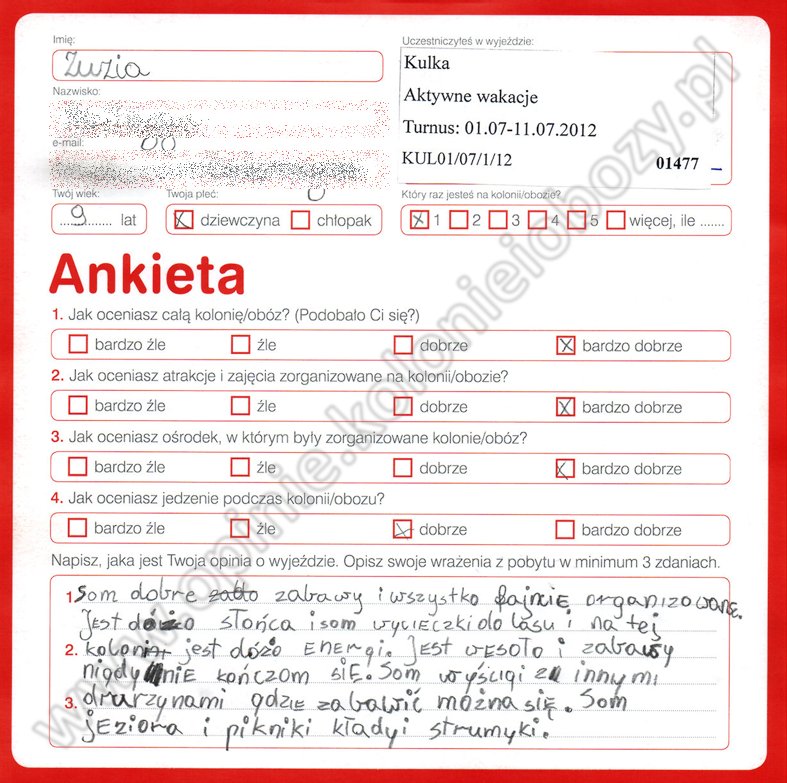 Imię:
Uczestniczyłeś w wyjeździe:
Zuzia
Kulka
Nazwisko:
Aktywne wakacje
Turnus: 01.07-11.07.2012
e-mail:
KUL01/07/1/12 01477
Twój wiek:
Twoja płeć:
Który raz jesteś na kolonii/obozie?
9 lat
dziewczyna chłopak
1 2 3 4 5 więcej, ile .......
Ankieta
1. Jak oceniasz całą kolonię/obóz? (Podobało Ci się?)
bardzo źle źle dobrze bardzo dobrze
2. Jak oceniasz atrakcje i zajęcia zorganizowane na kolonii/obozie?
bardzo źle źle dobrze bardzo dobrze
3. Jak oceniasz ośrodek, w którym były zorganizowane kolonie/obóz?
bardzo źle źle dobrze bardzo dobrze
4. Jak oceniasz jedzenie podczas kolonii/obozu?
bardzo źle źle dobrze bardzo dobrze
Napisz, jaka jest Twoja opinia o wyjeździe. Opisz swoje wrażenia z pobytu w minimum 3 zdaniach.
1. Som dobre zabawy i wszystko fajnie organizowane.
Jest dożo słońca i som wycieczki do lasu i na tej
2. koloni jest dożo energi. Jest wesoło i zabawy
nigdy nie kończom się. Som wyścigi z innymi
3. drurzynami gdzie zabawić można się. Som
jeziora i pikniki kładyi strumyki.
www.opinie.kolonieiobozy.pl